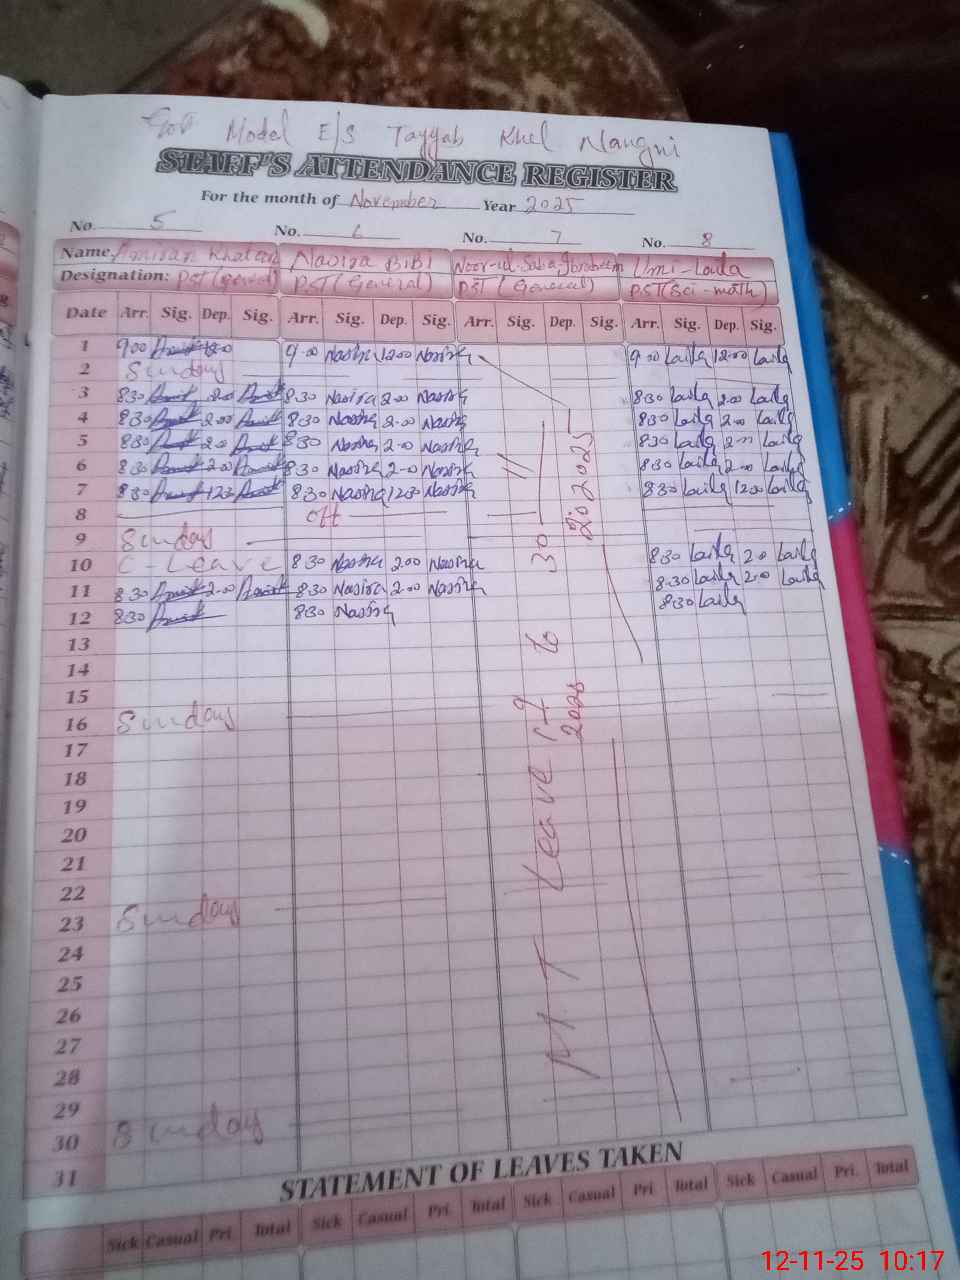 Gov Model E/S Tayyab Khel Nangni
STAFF'S ATTENDANCE REGISTER
For the month of November Year 2025
No. 5 No. 6 No. 7 No. 8
Name: Khatan Nasira BiBi Noor-ul-Saba Ibraheem Umi-Laila
Designation: PST (General) PST (General) PST (General) PST (Sci-math)
Date Arr. Sig. Dep. Sig. Arr. Sig. Dep. Sig. Arr. Sig. Dep. Sig. Arr. Sig. Dep. Sig.
1 9.00 12.00 9.00 Nasira 12.00 Nasira 9.00 Laila 12.00 Laila
2 Sunday
3 8.30 2.00 8.30 Nasira 2.00 Nasira 8.30 Laila 2.00 Laila
4 8.30 2.00 8.30 Nasira 2.00 Nasira 8.30 Laila 2.00 Laila
5 8.30 2.00 8.30 Nasira 2.00 Nasira 8.30 Laila 2.00 Laila
6 8.30 2.00 8.30 Nasira 2.00 Nasira 8.30 Laila 2.00 Laila
7 8.30 8.30 Nasira 12.00 Nasira 8.30 Laila 12.00 Laila
8 off
9 Sunday
10 C-Leave 8.30 Nasira 2.00 Nasira 8.30 Laila 2.00 Laila
11 8.30 2.00 8.30 Nasira 2.00 Nasira 8.30 Laila 2.00 Laila
12 8.30 8.30 Nasira 8.30 Laila
13
14
15
16 Sunday
17
18
19
20
21
22
23 Sunday
24
25
26
27
28
29
30 Sunday
31
Leave
2025 to 30
2025
STATEMENT OF LEAVES TAKEN
Sick Casual Pri. Total Sick Casual Pri. Total Sick Casual Pri Total Sick Casual Pri. Total
12-11-25 10:17